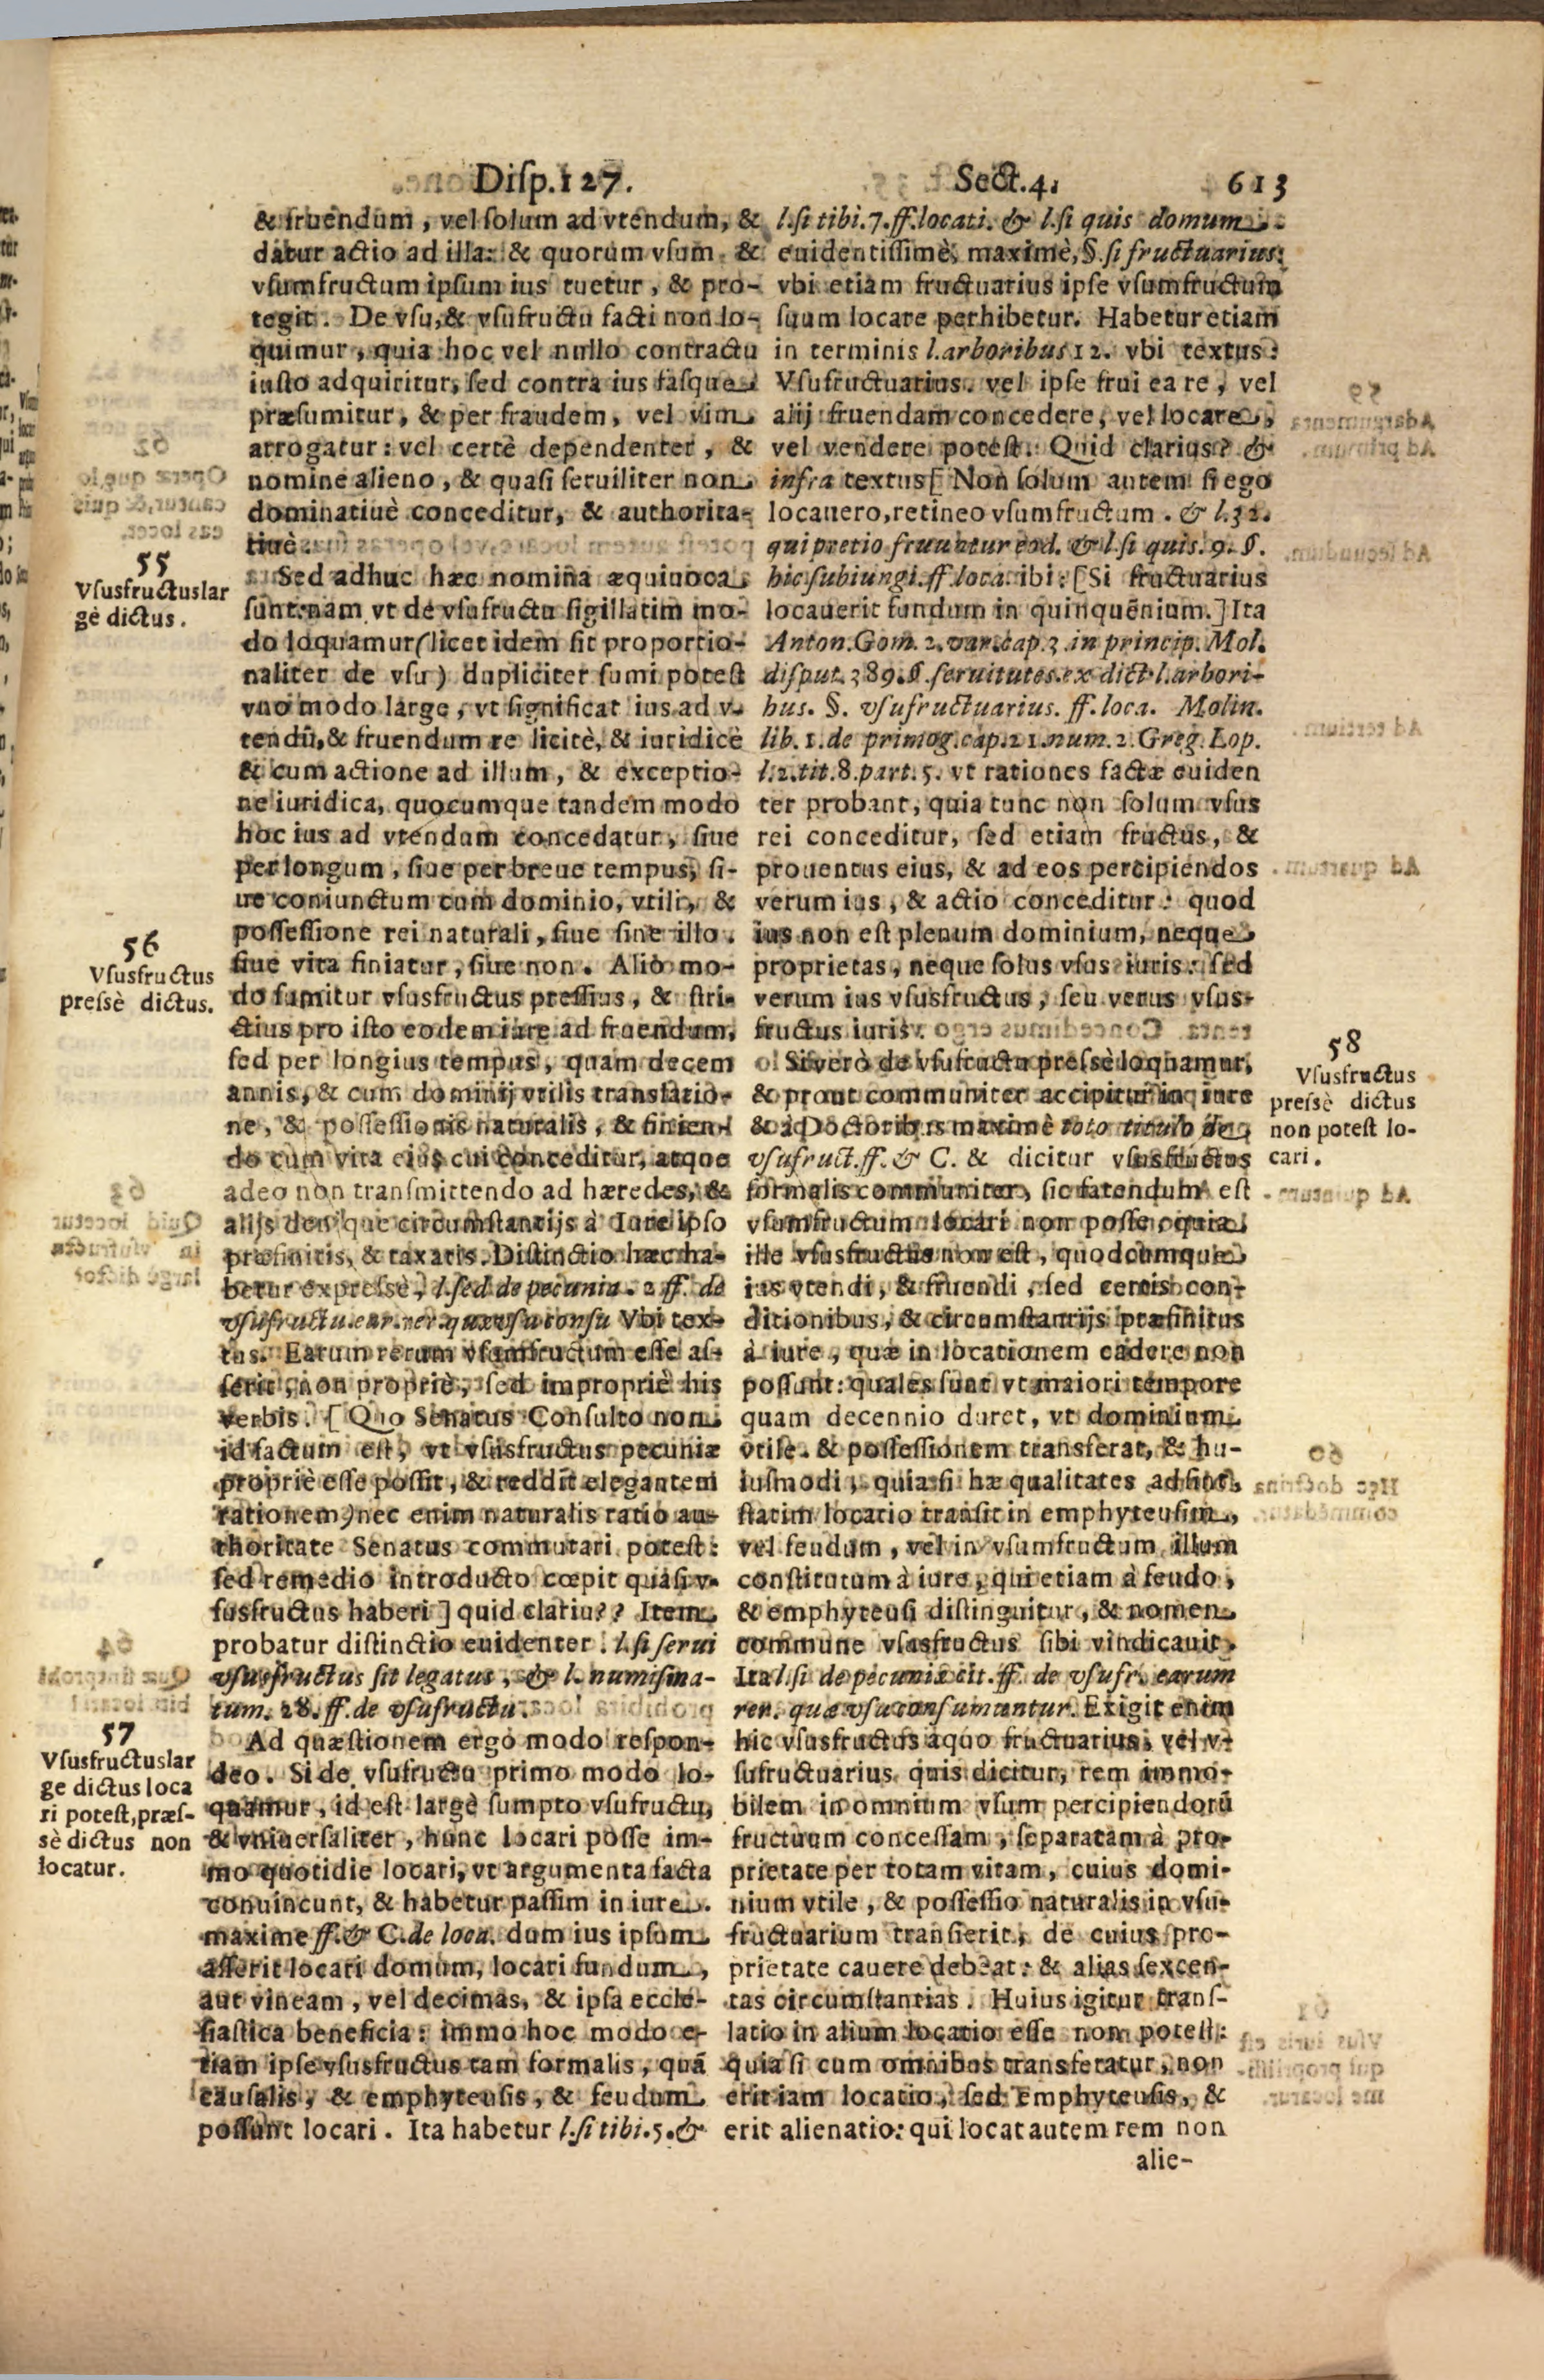 Disp. 127. Sect. 4. 613
& fruendum, vel solum ad vtendum, &
datur actio ad illa: & quorum vsum &
vsumfructum ipsum ius tuetur, & pro-
tegit. De vsu, & vsufructu facti non lo-
quimur, quia hoc vel nullo contractu
iusto adquiritur, sed contra ius fasque
præsumitur, & per fraudem, vel vim
arrogatur: vel certè dependenter, &
nomine alieno, & quasi seruiliter non
dominatiuè conceditur, & authorita-
tiuè.
55
Vsusfructus lar
gè dictus.
Sed adhuc hæc nomina æquiuoca
sunt: nam vt de vsufructu sigillatim mo-
do loquamur (licet idem sit proportio-
naliter de vsu) dupliciter sumi potest
vno modo largè, vt significat ius ad v-
tendū, & fruendum re licitè, & iuridicè
& cum actione ad illum, & exceptio-
ne iuridica, quocumque tandem modo
hoc ius ad vtendum concedatur, siue
per longum, siue per breue tempus, si-
ue coniunctum cum dominio, vtili, &
possessione rei naturali, siue sine illo.
56
Vsusfructus
pressè dictus.
siue vita finiatur, siue non. Alio mo-
do sumitur vsusfructus pressius, & stri-
ctius pro isto eodem iure ad fruendum,
sed per longius tempus, quam decem
annis, & cum dominij vtilis translatio-
ne, & possessionis naturalis, & finien-
do cum vita eius cui conceditur, atque
adeo non transmittendo ad hæredes, &
alijs denique circumstantijs à Iure ipso
præfinitis, & taxatis. Distinctio hæc ha-
betur expressè, l. sed de pecunia. 2 ff. de
vsufructu. ear. rer. quæ vsu consu Vbi tex-
tus. Earum rerum vsumfructum esse as-
serit, non propriè, sed impropriè his
verbis. [Quo Senatus Consulto non
id factum est, vt vsusfructus pecuniæ
propriè esse possit, & reddit elegantem
rationem) nec enim naturalis ratio au-
thoritate Senatus commutari potest:
sed remedio introducto cœpit quasi v-
susfructus haberi] quid clariu?? Item
probatur distinctio euidenter. l. si serui
vsusfructus sit legatus, & l. numisma-
tum. 28. ff. de vsufructu.
57
Vsusfructus lar
ge dictus loca
ri potest, præs-
sè dictus non
locatur.
Ad quæstionem ergo modo respon-
deo. Si de vsufructu primo modo lo-
quamur, id est largè sumpto vsufructu,
& vniuersaliter, hunc locari posse im-
mo quotidie locari, vt argumenta facta
conuincunt, & habetur passim in iure.
maxime ff. & C. de loca. dum ius ipsum
asserit locari domum, locari fundum,
aut vineam, vel decimas, & ipsa eccle-
siastica beneficia: immo hoc modo e-
tiam ipse vsusfructus tam formalis, quā
causalis, & emphyteusis, & feudum
possunt locari. Ita habetur l. si tibi. 5. &
l. si tibi. 7. ff. locati. & l. si quis domum.
euidentissimè, maximè, §. si fructuarius:
vbi etiam fructuarius ipse vsumfructum
suum locare perhibetur. Habetur etiam
in terminis l. arboribus 12. vbi textus:
Vsufructuarius. vel ipse frui ea re, vel
alij fruendam concedere, vel locare,
vel vendere potest. Quid clarius? &
infra textus [Non solum autem si ego
locauero, retineo vsumfructum. & l. 32.
qui pretio fruuntur eod. & l. si quis. 9. §.
hic subiungi. ff. loca. ibi: [Si fructuarius
locauerit fundum in quinquēnium.] Ita
Anton. Gom. 2. var. cap. 3. in princip. Mol.
disput. 389. §. seruitutes. ex dict. l. arbori-
bus. §. vsufructuarius. ff. loca. Molin.
lib. 1. de primog. cap. 21. num. 2. Greg. Lop.
l. 2. tit. 8. part. 5. vt rationes factæ euiden
ter probant, quia tunc non solum vsus
rei conceditur, sed etiam fructus, &
prouentus eius, & ad eos percipiendos
verum ius, & actio conceditur: quod
ius non est plenum dominium, neque
proprietas, neque solus vsus iuris: sed
verum ius vsusfructus, seu verus vsus-
fructus iuris.
58
Vsusfructus
pressè dictus
non potest lo-
cari.
Si verò de vsufructu pressè loquamur,
& prout communiter accipitur in iure
& à Doctoribus maximè toto titulo de
vsufruct. ff. & C. & dicitur vsusfructus
formalis communiter, sic fatendum est
vsumfructum locari non posse, quia
ille vsusfructus non est, quodcumque
ius vtendi, & fruendi, sed certis con-
ditionibus, & circumstantijs præfinitus
à iure, quæ in locationem cadere non
possunt: quales sunt vt maiori tempore
quam decennio duret, vt dominium
vtile. & possessionem transferat, & hu-
iusmodi, quia si hæ qualitates adsint,
statim locatio transit in emphyteusim,
vel feudum, vel in vsumfructum illum
constitutum à iure, qui etiam à feudo,
& emphyteusi distinguitur, & nomen
commune vsusfructus sibi vindicauit.
Ita l. si de pecunia cit. ff. de vsufr. earum
rer. quæ vsu consumuntur. Exigit enim
hic vsusfructus à quo fructuarius, vel v-
sufructuarius quis dicitur, rem immo-
bilem in omnium vsum percipiendorū
fructuum concessam, separatam à pro-
prietate per totam vitam, cuius domi-
nium vtile, & possessio naturalis in vsu-
fructuarium transierit, de cuius pro-
prietate cauere debeat: & alias sexcen-
tas circumstantias. Huius igitur trans-
latio in alium locatio esse non potest:
quia si cum omnibus transferatur, non
erit iam locatio, sed Emphyteusis, &
erit alienatio: qui locat autem rem non
alie-